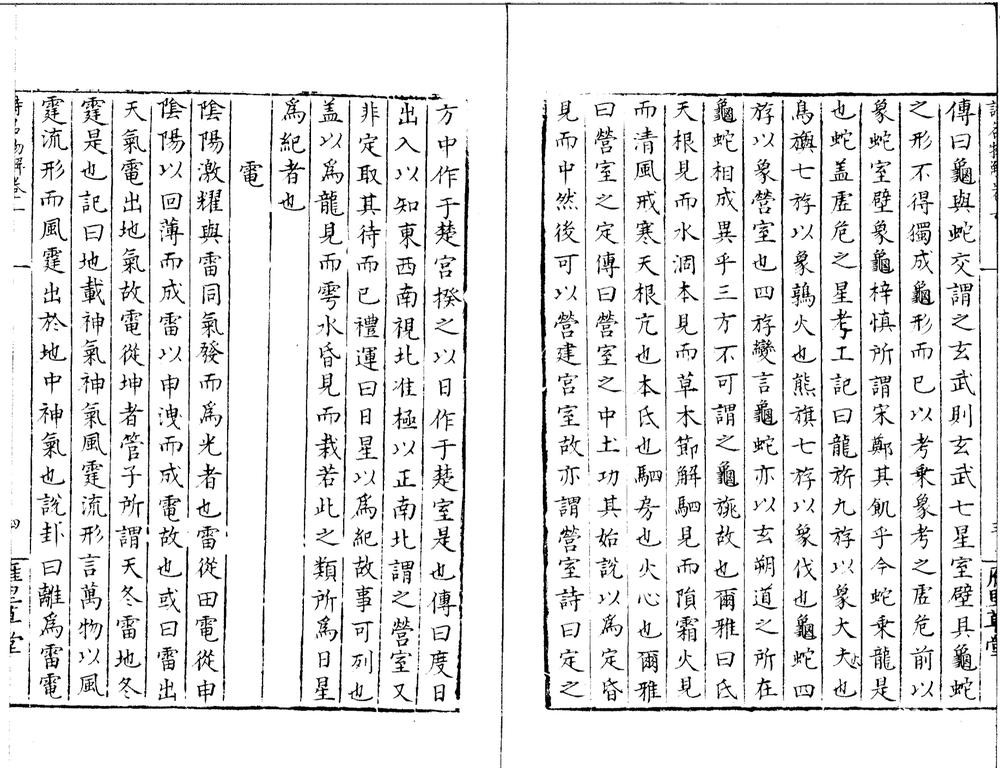 傳曰龜與蛇交謂之玄武則玄武七星室壁具龜蛇
之形不得獨成龜形而已以考乗象考之虛危前以
象蛇室壁象龜梓慎所謂宋鄭其飢乎今蛇乗龍是
也蛇盖虛危之星考工記曰龍旂九斿以象大火也
鳥旟七斿以象鶉火也熊旗七斿以象伐也龜蛇四
斿以象營室也四斿變言龜蛇亦以玄朔道之所在
龜蛇相成異乎三方不可謂之龜旐故也爾雅曰氐
天根見而水涸本見而草木節解駟見而隕霜火見
而清風戒寒天根亢也本氐也駟房也火心也爾雅
曰營室之定傳曰營室之中土功其始說以為定昏
見而中然後可以營建宫室故亦謂營室詩曰定之
方中作于楚宮揆之以日作于楚室是也傳曰度日
出入以知東西南視北准極以正南北謂之營室又
非定取其待而已禮運曰日星以為紀故事可列也
盖以為龍見而雩水昏見而栽若此之類所為日星
為紀者也
電
陰陽激耀與雷同氣發而為光者也雷從田電從申
陰陽以回薄而成雷以申洩而成電故也或曰雷出
天氣電出地氣故電從坤者管子所謂天冬雷地冬
霆是也記曰地載神氣神氣風霆流形言萬物以風
霆流形而風霆出於地中神氣也說卦曰離為雷電
四